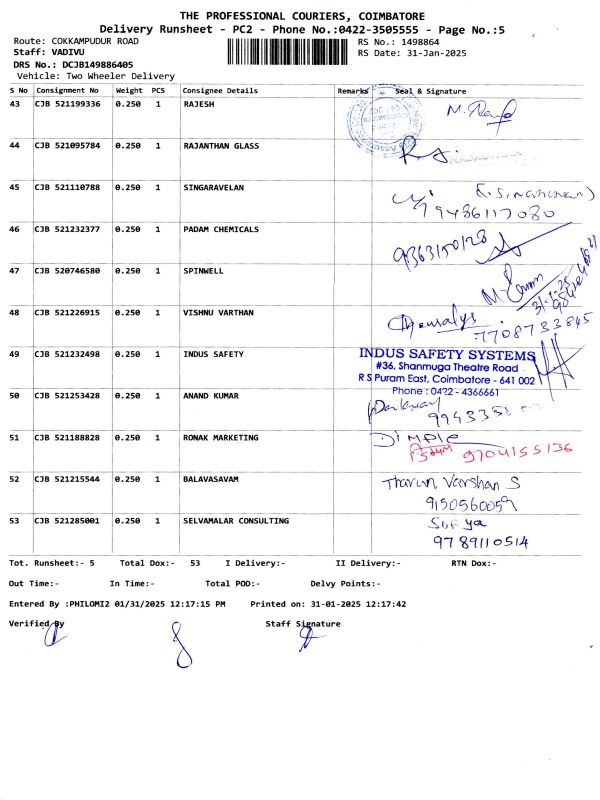 THE PROFESSIONAL COURIERS, COIMBATORE
Delivery Runsheet - PC2 - Phone No.:0422-3505555 - Page No.:5
Route: COKKAMPUDUR ROAD RS No.: 1498864
Staff: VADIVU RS Date: 31-Jan-2025
DRS No.: DCJB149886405
Vehicle: Two Wheeler Delivery
S No Consignment No Weight PCS Consignee Details Remarks Seal & Signature
43 CJB 521199336 0.250 1 RAJESH
44 CJB 521095784 0.250 1 RAJANTHAN GLASS
45 CJB 521110788 0.250 1 SINGARAVELAN
9486117080
46 CJB 521232377 0.250 1 PADAM CHEMICALS 9363150128
47 CJB 520746580 0.250 1 SPINWELL
48 CJB 521226915 0.250 1 VISHNU VARTHAN
7708733845
49 CJB 521232498 0.250 1 INDUS SAFETY INDUS SAFETY SYSTEMS
#36, Shanmuga Theatre Road
R S Puram East, Coimbatore - 641 002
Phone : 0422 - 4366661
50 CJB 521253428 0.250 1 ANAND KUMAR
51 CJB 521188828 0.250 1 RONAK MARKETING DIMPLE
9704155136
52 CJB 521215544 0.250 1 BALAVASAVAM Tharun Varshan S
9150560059
53 CJB 521285001 0.250 1 SELVAMALAR CONSULTING Surya
9789110514
Tot. Runsheet:- 5 Total Dox:- 53 I Delivery:- II Delivery:- RTN Dox:-
Out Time:- In Time:- Total POD:- Delvy Points:-
Entered By :PHILOMI2 01/31/2025 12:17:15 PM Printed on: 31-01-2025 12:17:42
Verified By Staff Signature